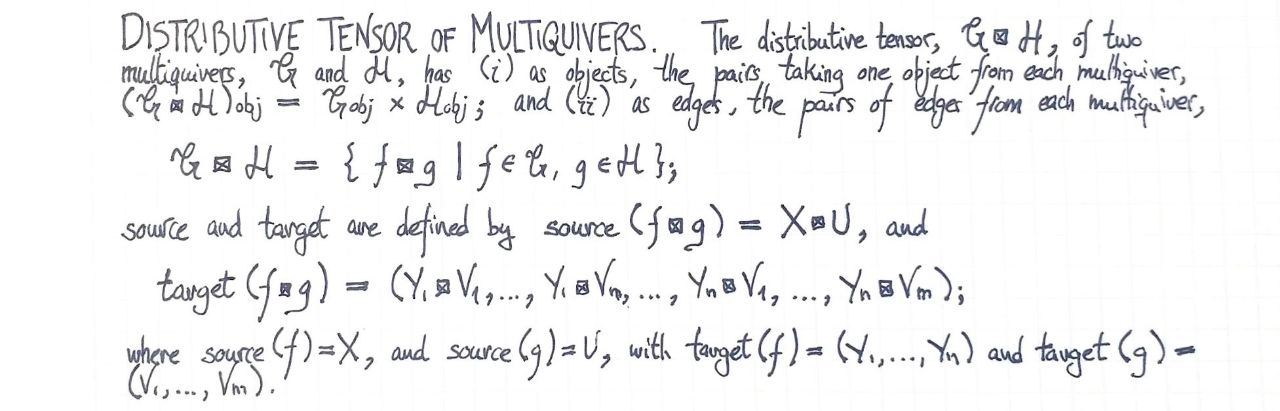 DISTRIBUTIVE TENSOR OF MULTIQUIVERS. The distributive tensor, 𝒢 ⊠ ℋ, of two
multiquivers, 𝒢 and ℋ, has (i) as objects, the pairs taking one object from each multiquiver,
(𝒢 ⊠ ℋ)obj = 𝒢obj × ℋobj; and (ii) as edges, the pairs of edges from each multiquiver,
𝒢 ⊠ ℋ = { f ⊠ g | f ∈ 𝒢, g ∈ ℋ };
source and target are defined by source (f ⊠ g) = X ⊠ U, and
target (f ⊠ g) = (Y₁ ⊠ V₁, ..., Y₁ ⊠ Vₘ, ..., Yₙ ⊠ V₁, ..., Yₙ ⊠ Vₘ);
where source (f) = X, and source (g) = U, with target (f) = (Y₁, ..., Yₙ) and target (g) =
(V₁, ..., Vₘ).